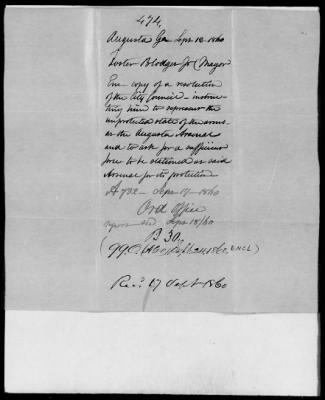 474.
Augusta Ga Sept 12 1860
Foster Blodget Jr (Mayor
Enc copy of a resolution
of the City Council - instruc-
ting him to represent the
unprotected state of the arms
at the Augusta Arsenal
and to ask for a sufficient
force to be stationed at said
Arsenal for its protection
Sept 17 1860
Ord Office
Sept 18/60
B 30.
ENCL)
Rec: 17 Sept 1860